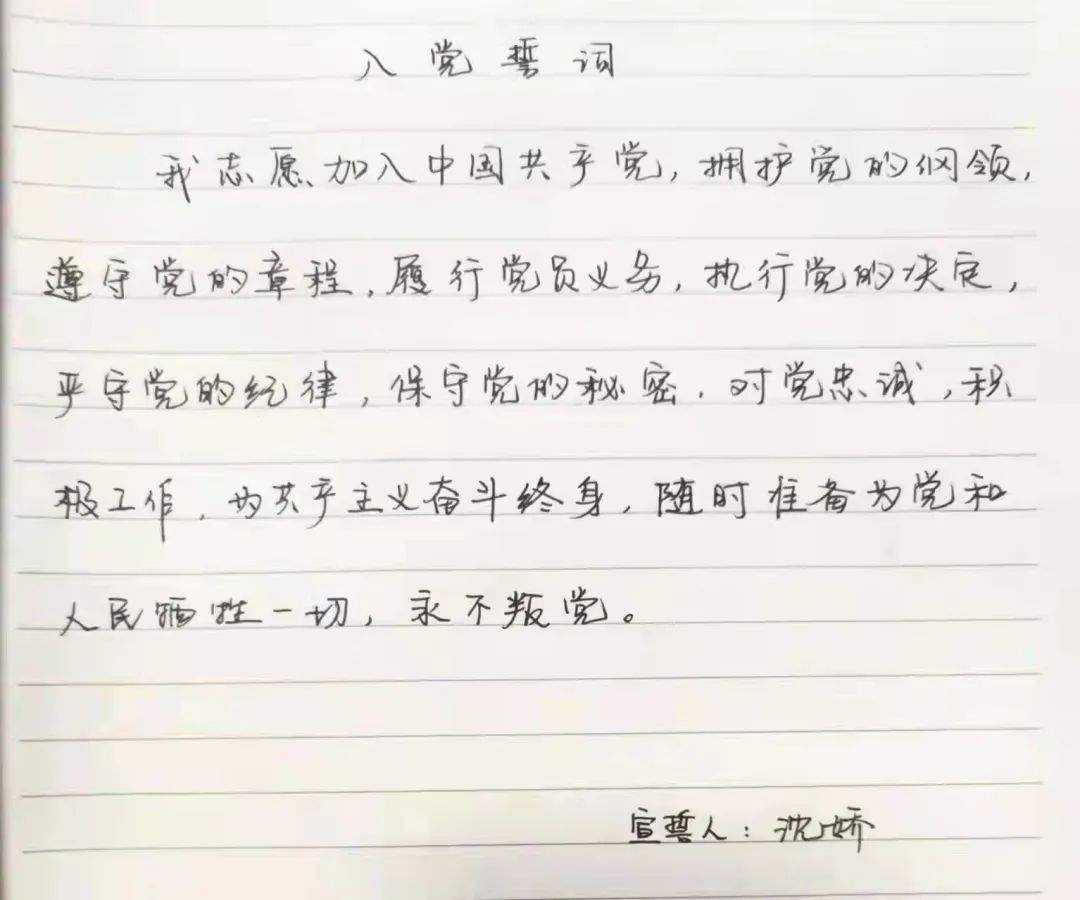 入党誓词
我志愿加入中国共产党，拥护党的纲领，
遵守党的章程，履行党员义务，执行党的决定，
严守党的纪律，保守党的秘密，对党忠诚，积
极工作，为共产主义奋斗终身，随时准备为党和
人民牺牲一切，永不叛党。
宣誓人：沈娇